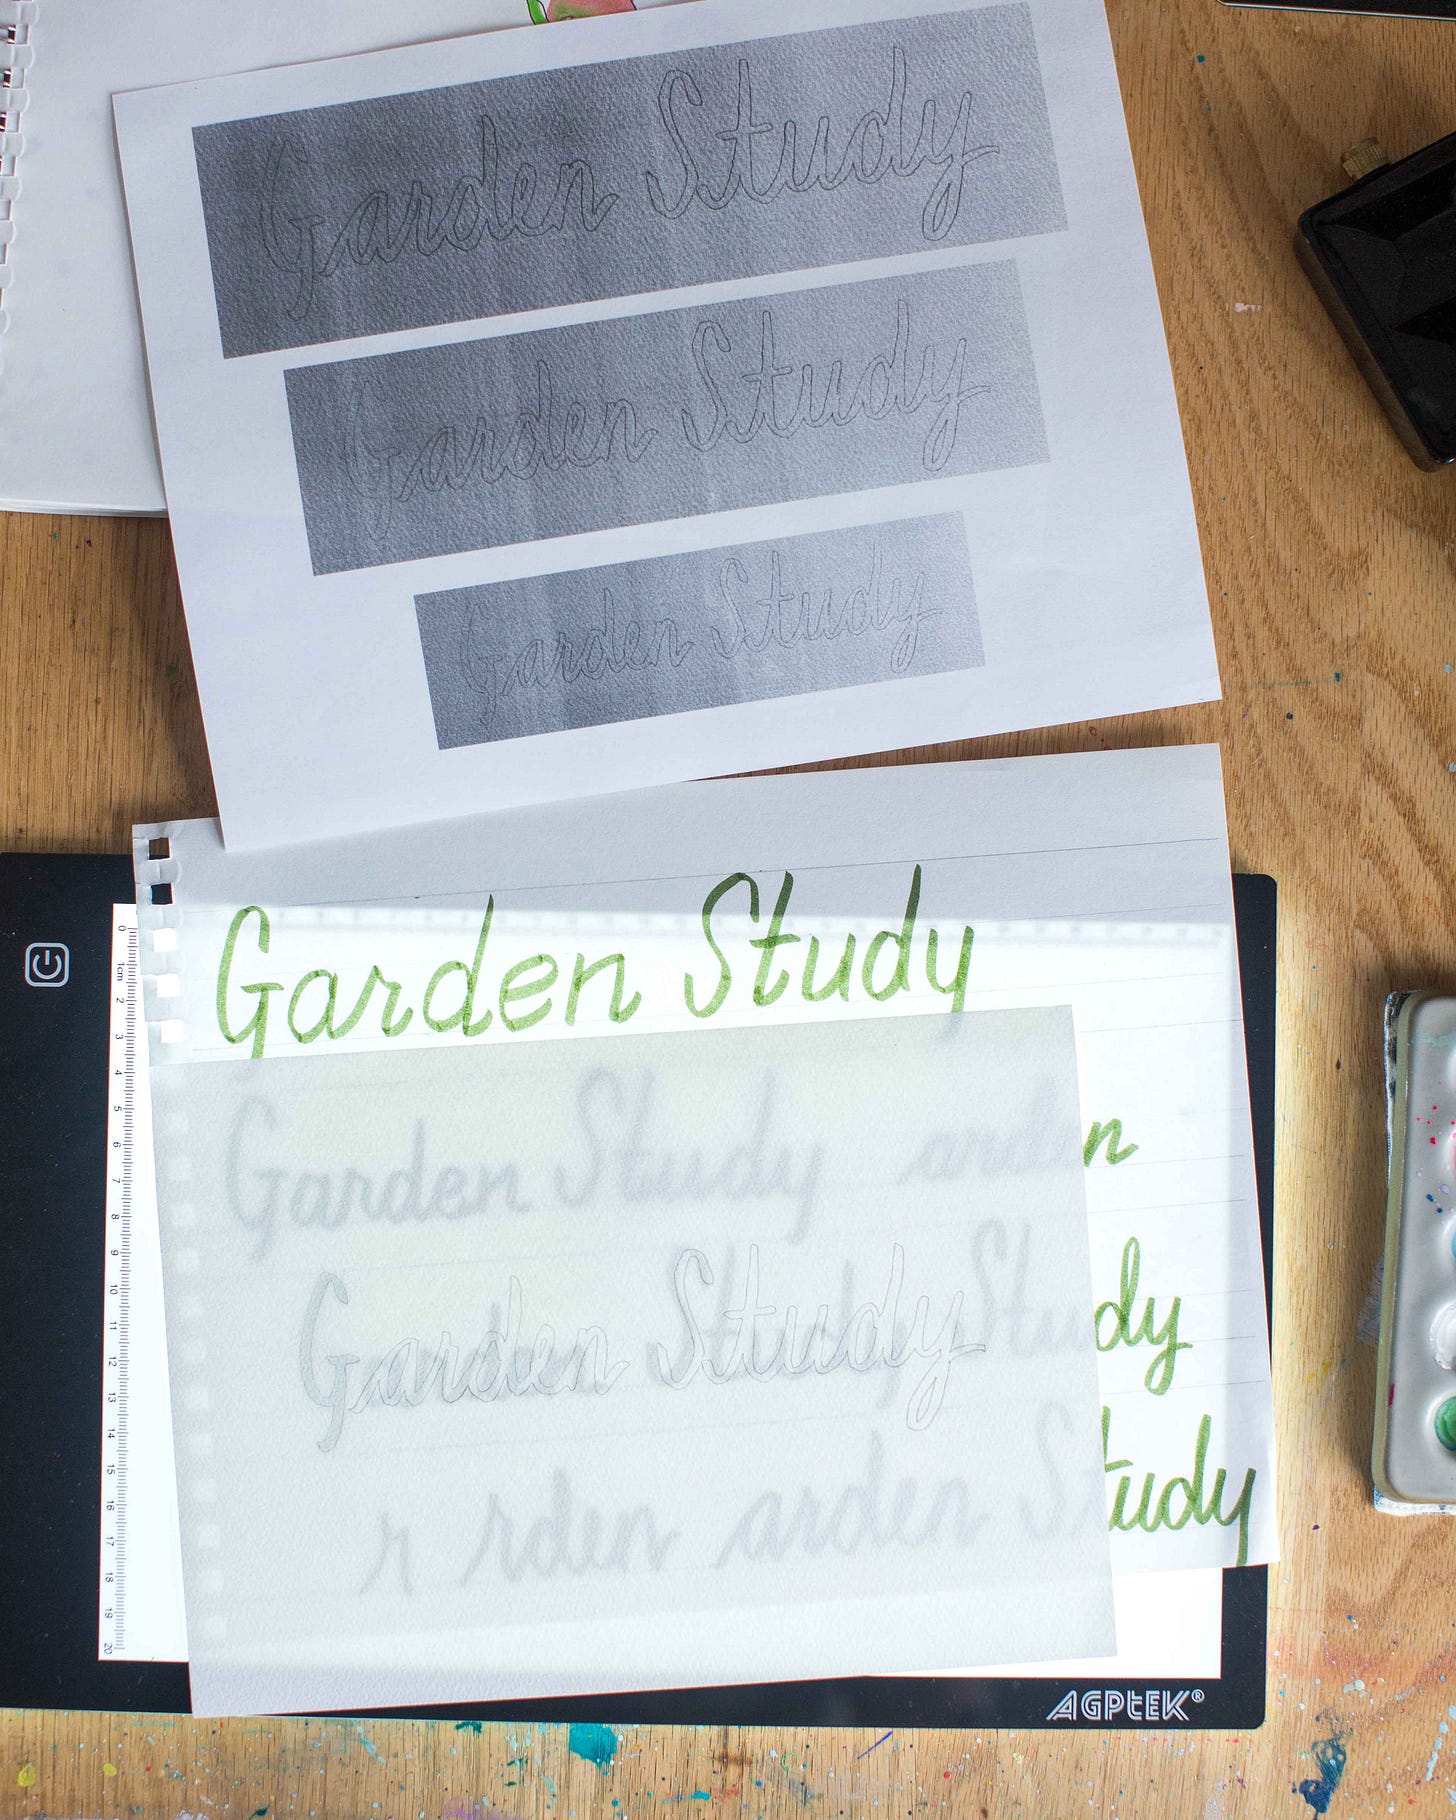 Garden Study
Garden Study
Garden Study
Garden Study
Garden Study arden
Garden Study Study
r rden arden Study
0
1cm
2
3
5
6
7
8
9
10
11
12
13
14
15
16
17
18
19
20
AGPtEK®